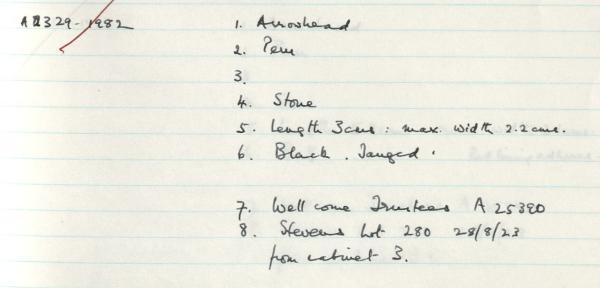 A 329-1982 1. Arrowhead
2. Peru
3.
4. Stone
5. Length 3cms : max. width 2.2cms.
6. Black. Tanged.
7. Wellcome Trustees A 25390
8. Stevens Lot 280 28/8/23
from cabinet 3.